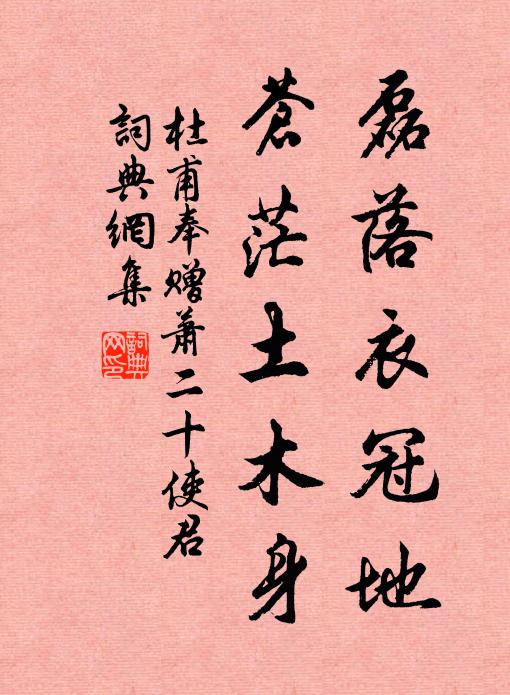 磊落衣冠地
蒼茫土木身
杜甫奉贈蕭二十使君
詞典網集
詞典
网印